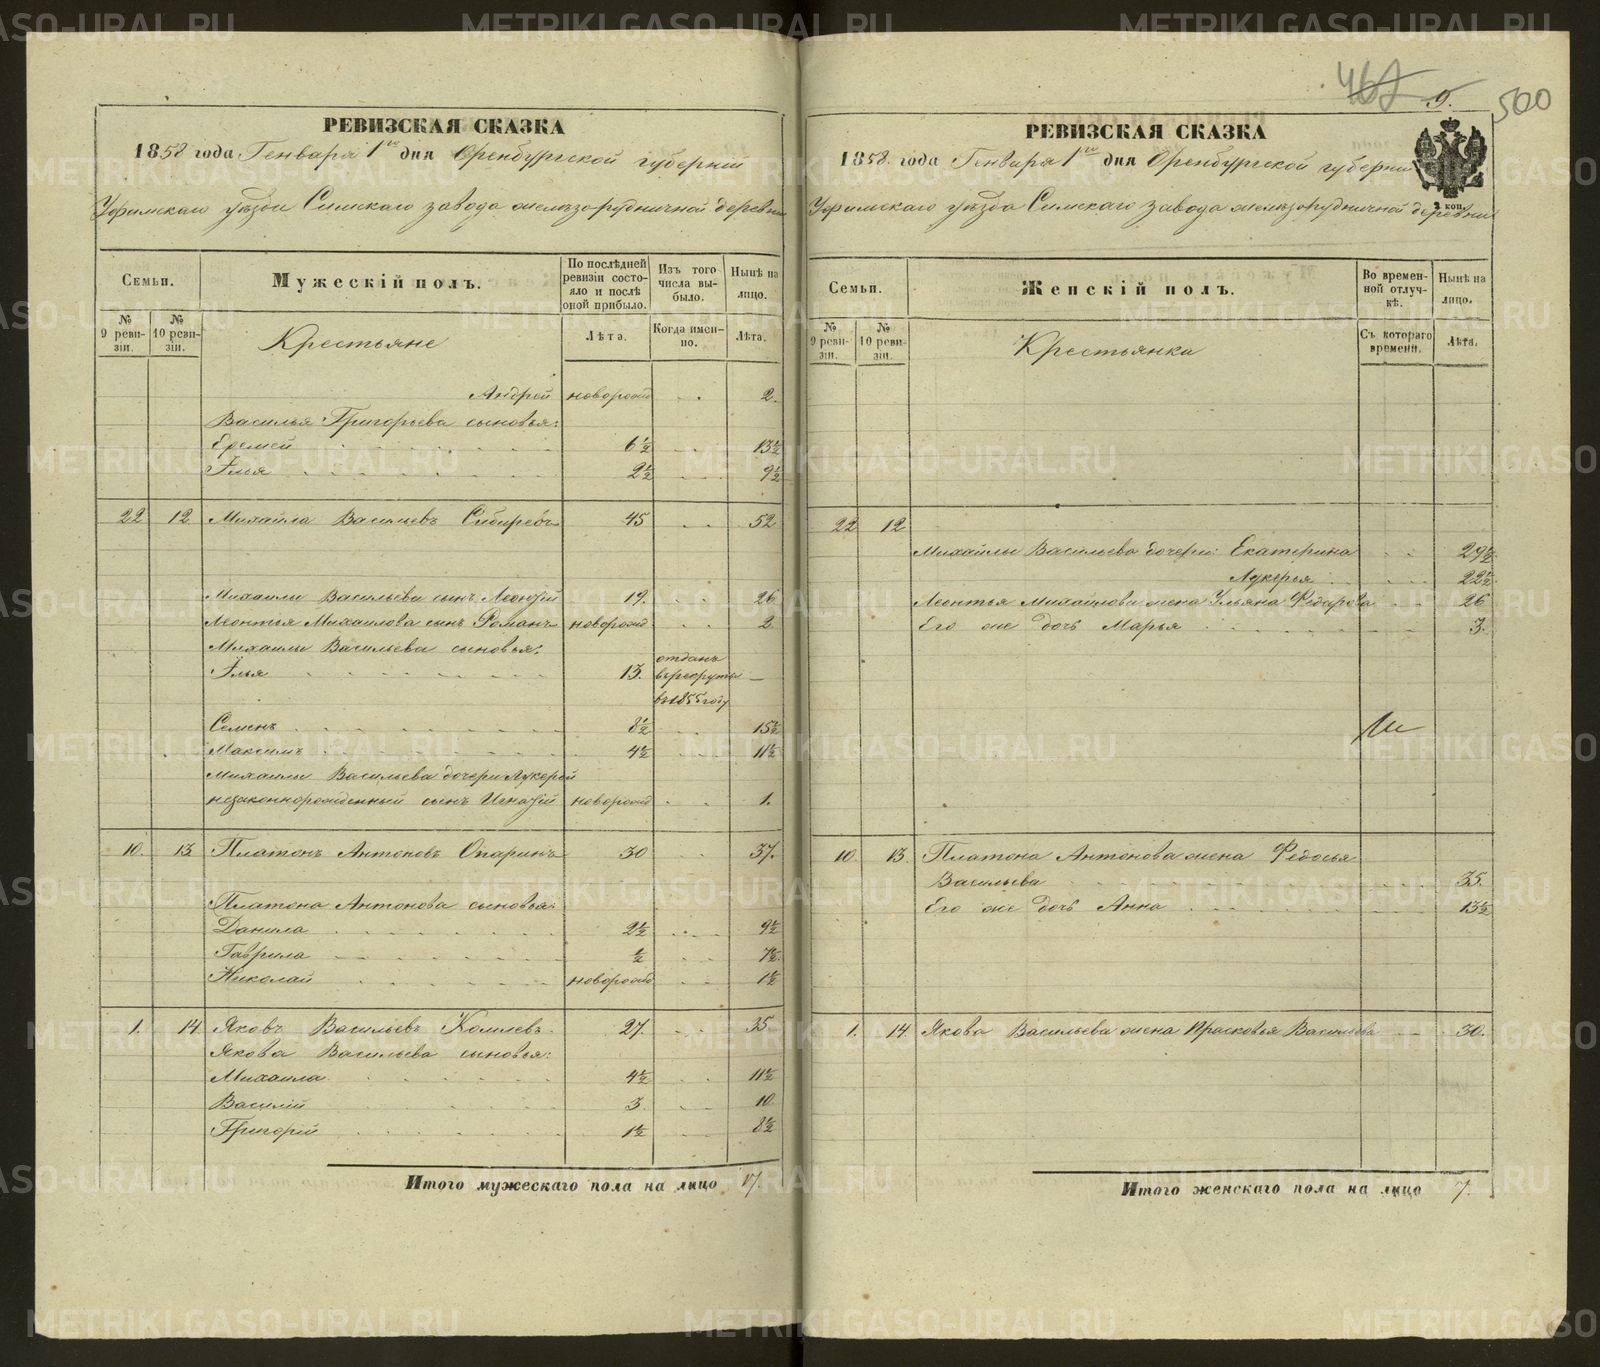 467 9. 500
РЕВИЗСКАЯ СКАЗКА
1858 года Генваря 1го дня Оренбургской губернии
Уфимскаго уѣзда Симскаго завода желѣзорудничной деревни
Семьи.
Мужескій полъ.
По послѣдней ревизіи состояло и послѣ оной прибыло.
Изъ того числа выбыло.
Нынѣ на лицо.
№ 9 ревизіи.
№ 10 ревизіи.
Крестьяне
Лѣта.
Когда именно.
Лѣта.
Андрей новорожд . . 2.
Василья Григорьева сыновья:
Еремей 6½ 13½
Илья 2½ 9½
22 12 Михайла Васильевъ Сибиревъ 45 . . 52
Михаилы Васильева сынъ Леонтій 19. . . 26
Леонтья Михайлова сынъ Романъ новорожд . . 2
Михаилы Васильева сыновья:
Илья 13. отданъ въ рекруты въ 1855 году —
Семенъ 8½ 15½
Максимъ 4½ 11½
Михаилы Васильева дочери Лукерьи
незаконнорожденный сынъ Игнатій новорожд . . 1.
10. 13 Платонъ Антоновъ Опаринъ 30 . . 37.
Платона Антонова сыновья:
Данила 2½ 9½
Гаврила ½ 7½
Николай новорожд 1½
1. 14 Яковъ Васильевъ Комлевъ 27. . . 35
Якова Васильева сыновья:
Михаила 4½ 11½
Василій 3. 10
Григорій 1½ 8½
Итого мужескаго пола на лицо 17.
РЕВИЗСКАЯ СКАЗКА
1858. года Генваря 1го дня Оренбургской губерніи
2 коп.
Уфимскаго уѣзда Симскаго завода желѣзорудничной деревни
Семьи.
Женскій полъ.
Во временной отлучкѣ.
Нынѣ на лицо.
№ 9 ревизіи.
№ 10 ревизіи.
Крестьянки
Съ котораго времени.
Лѣта.
22 12
Михайлы Васильева дочери: Екатерина . . 29½
Лукерья 22½
Леонтья Михайлова жена Ульяна Федорова . . 26
Его же дочь Марья 3.
10. 13. Платона Антонова жена Федосья
Васильева 35.
Его же дочь Анна 13½
1. 14 Якова Васильева жена Прасковья Васильева 30.
Итого женскаго пола на лицо 7.
METRIKI.GASO-URAL.RU